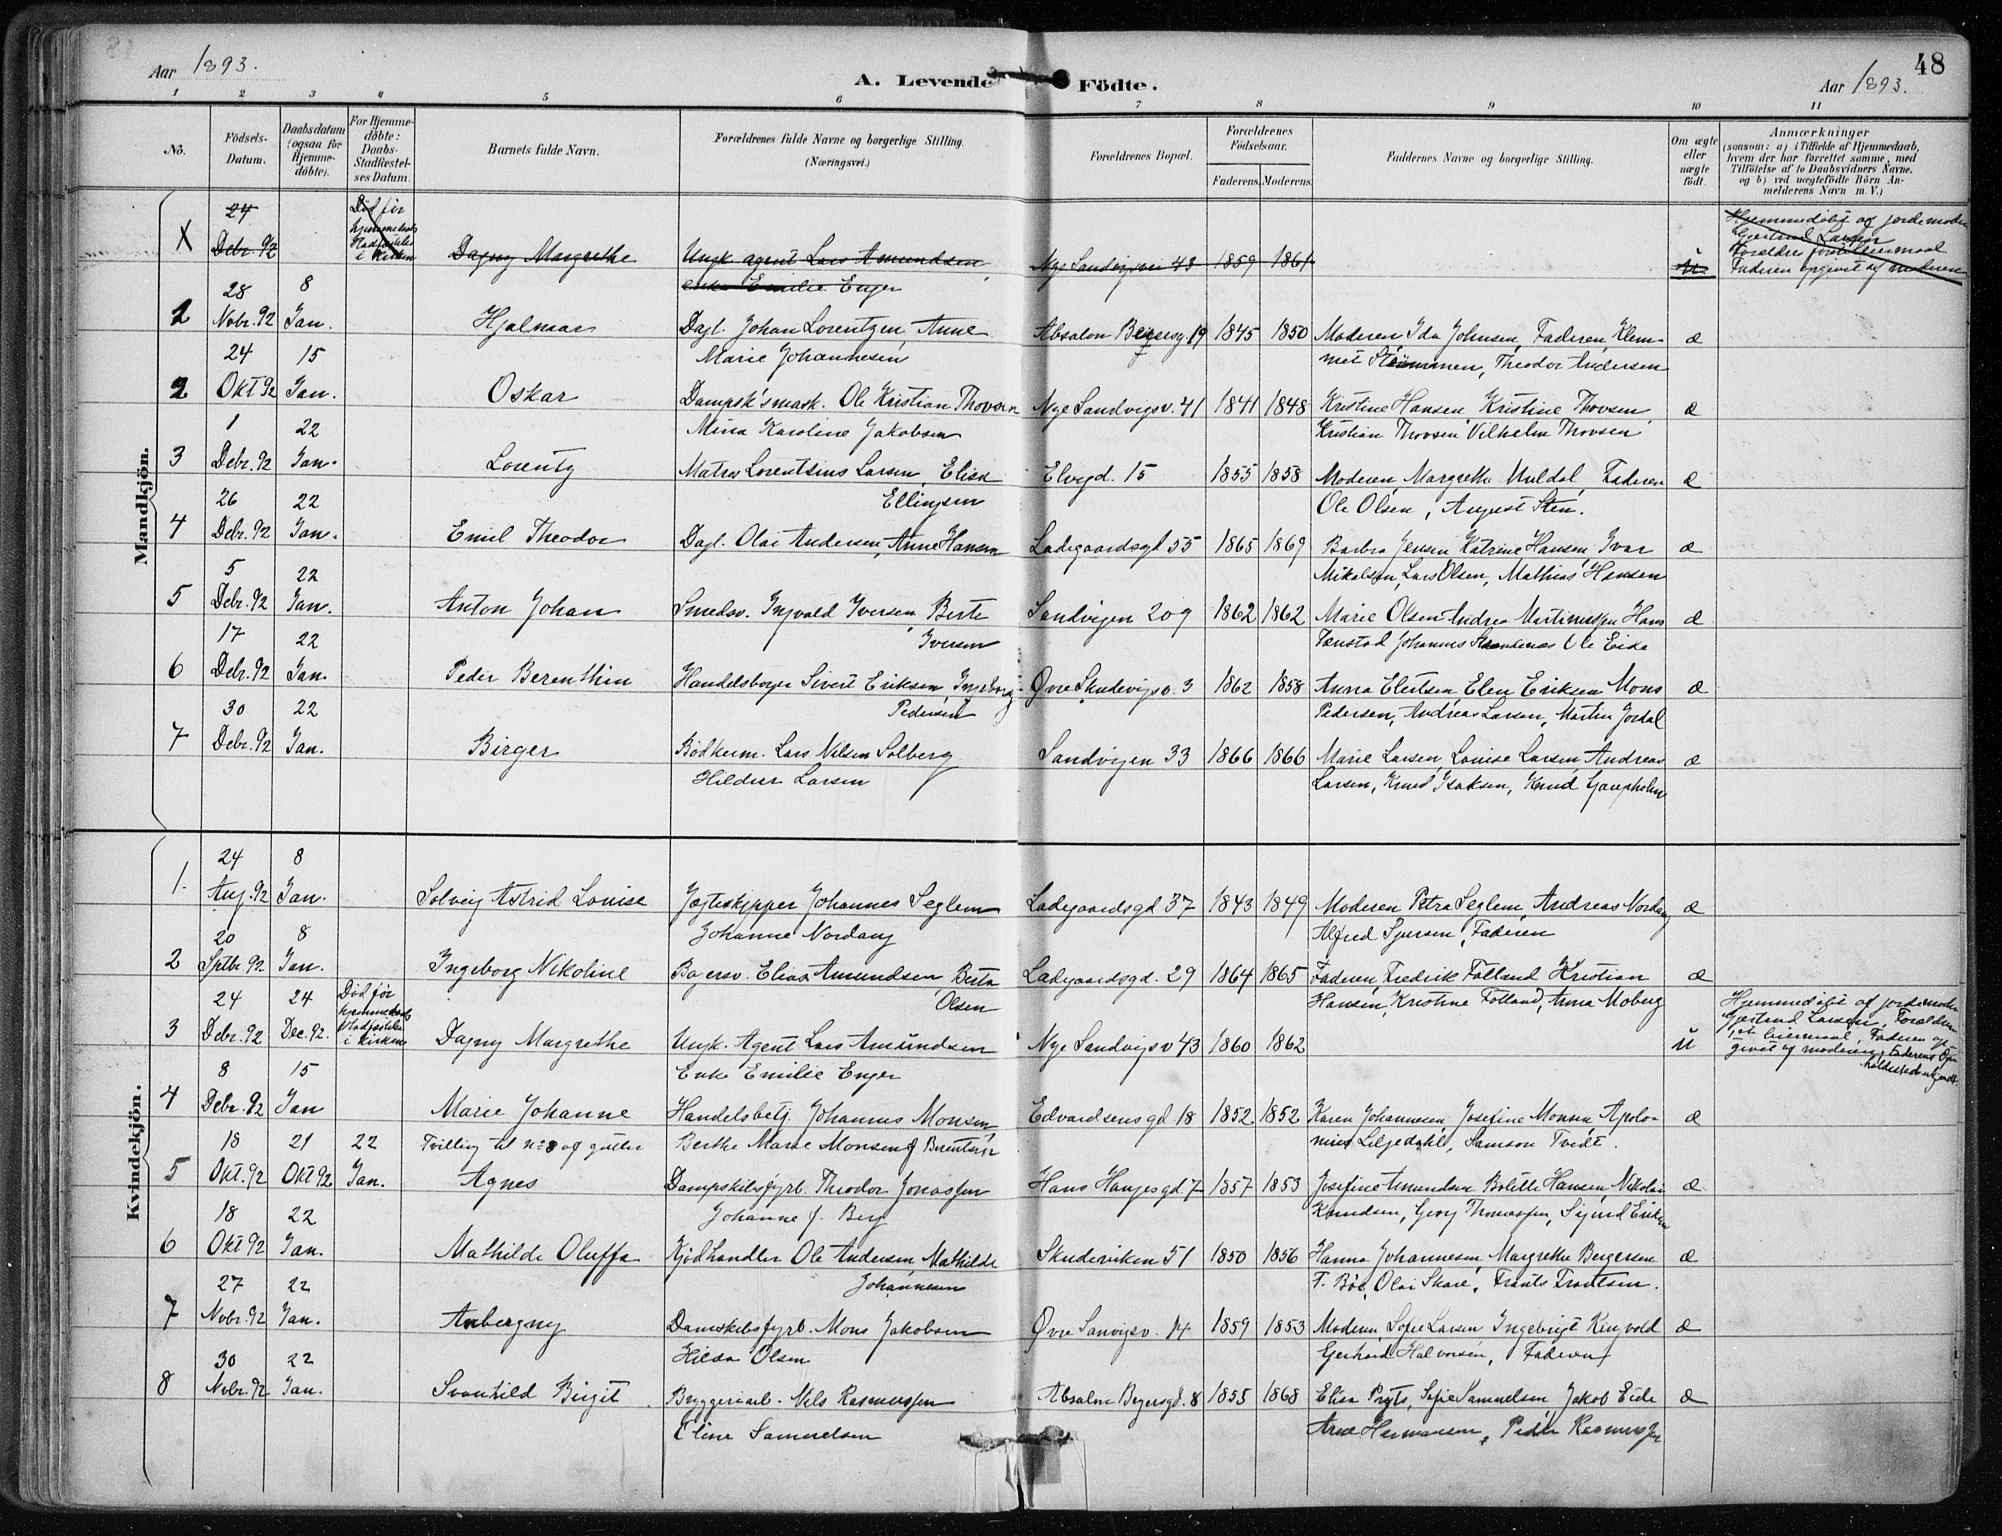 Aar 1893.
A. Levende Födte.
48
Aar 1893.
1 2 3 4 5 6 7 8 9 10 11
No.
Födsels-Datum.
Daabsdatum (ogsaa for Hjemme-döbte).
For Hjemme-döbte: Daabs-Stadfæstel-ses Datum.
Barnets fulde Navn.
Forældrenes fulde Navne og borgerlige Stilling. (Næringsvei.)
Forældrenes Bopæl.
Forældrenes Födselsaar.
Faderens. Moderens.
Faddernes Navne og borgerlige Stilling.
Om ægte eller uægte födt.
Anmærkninger
(saasom: a) i Tilfælde af Hjemmedaab, hvem der har forrettet samme, med Tilföielse af to Daabsvidners Navne, og b) ved uægtefödte Börn An-melderens Navn m. V.)
Mandkjön.
24 Debr. 92 Död før hjemmedaabs Stadfæstelse i kirken Dagny Margrethe Ungk. agent Lars Amundsen Nye Sandvigsvei 43 1859 1861 u Hjemmedöbt af jordemoder
enke Emilie Enger Gjertrud Larsen
Forældres leiermaal
Faderen opgivet af moderen
1 28 Nobr. 92 8 Jan. Hjalmar Dagl. Johan Lorentzen, Anne Absalon Beyersg. 19 1845 1850 Moderen, Ida Johnsen, Faderen, Klem- æ
Marie Johannesen met Strömmen, Theodor Andersen
2 24 Okt 92 15 Jan. Oskar Dampsk's mask. Ole Kristian Thovsen Nye Sandvigsv. 41 1841 1848 Kristine Hansen Kristine Thovsen æ
Mina Karoline Jakobsen Kristian Thovsen Vilhelm Thovsen
3 1 Debr. 92 22 Jan. Lorentz Matros Lorentsius Larsen, Elisa Elvegd. 15 1855 1858 Moderen, Margrethe Muldal, Faderen æ
Ellingsen Ole Olsen, August Sten.
4 26 Debr. 92 22 Jan. Emil Theodor Dagl. Olai Andersen, Anne Hansen Ladegaardsgd 55 1865 1869 Barbra Jensen, Katrine Hansen, Ivar æ
Mikalsen, Lars Olsen, Mathias Hansen
5 5 Debr. 92 22 Jan. Anton Johan Smedsv. Ingvald Iversen, Berte Sandvigen 209 1862 1862 Marie Olsen Andrea Martinussen Hans æ
Iversen Johannes Ole Eide
6 17 Debr. 92 22 Jan. Peder Berenthin Handelsborger Sivert Eriksen, Ingeborg Øvre Skudevigsv. 3 1862 1858 Anna Elertsen, Elen Eriksen Mons æ
Pedersen Pedersen, Andreas Larsen, Martin Jordal
7 30 Debr. 92 22 Jan. Birger Bödkerm. Lars Nilsen Solberg Sandvigen 33 1866 1866 Marie Larsen, Louise Larsen, Andreas æ
Hildur Larsen Larsen, Knud Isaksen, Knud Gaupholm
Kvindekjön.
1. 24 Aug. 92 8 Jan. Solveig Astrid Louise Jagteskipper Johannes Seglem Ladegaardsgd 37 1843 1849 Moderen Petra Seglem, Andreas Nordang æ
Johanne Nordang Alfred Syversen, Faderen
2 20 Sptbr. 92 8 Jan. Ingeborg Nikoline Bagersv. Elias Amundsen Berta Ladegaardsgd. 29 1864 1865 Faderen, Fredrik Folland Kristian æ
Olsen Hansen, Kristine Folland, Anna Moberg
3 24 Debr. 92 24 Dec. 92. Död før hjemmedaabs Stadfæstelse i kirken Dagny Margrethe Ungk. Agent Lars Amundsen Nye Sandvigsv 43 1860 1862 u Hjemmedöbt af jordemoder
Enke Emilie Enger Gjertrud Larsen, Forældrenes
leiermaal, Faderen op-
givet af moderen, Faderens Op-
holdssted ubekjendt.
4 8 Debr. 92 15 Jan Marie Johanne Handelsbetj. Johannes Monsen, Edvardsensgd 18 1852 1852 Karen Johannesen, Josefine Monsen, Apolo- æ
Berthe Marie Monsen f. Berntsen nius Liljedahl, Samson Tvedt.
5 18 Okt. 92 21 Okt 92 22 Jan. Tvilling til no 8 af gutter
Agnes Dampskibsfyrb. Theodor Jonassen Hans Haugesgd 7 1857 1853 Josefine Amundsen Bolette Hansen, Nikolai æ
Johanne f. Berg Knudsen, Georg Thomassen, Sigurd Eriksen
6 18 Okt 92 22 Jan. Mathilde Oluffa Kjödhandler Ole Andersen Mathilde Skudeviken 51 1850 1856 Hanna Johannesen, Margrethe Bergersen æ
Johannesen F. Böe, Olai Skare, Frants Frantsen.
7 27 Nobr. 92 22 Jan. Anbergny Damskibsfyrb. Mons Jakobsen Øvre Sanvigsv. 14 1859 1853 Moderen, Sofie Larsen Ingebrigt Ringvold æ
Hilda Olsen Gerhard Halvorsen, Faderen
8 30 Nobr. 92 22 Jan. Svanhild Birgit Bryggeriarb. Nils Rasmussen Absalon Beyersgd. 8 1855 1868 Elisa Pryts, Sofie Samuelsen, Jakob Eide æ
Eline Samuelsen Arne Hermansen, Peder Rasmussen